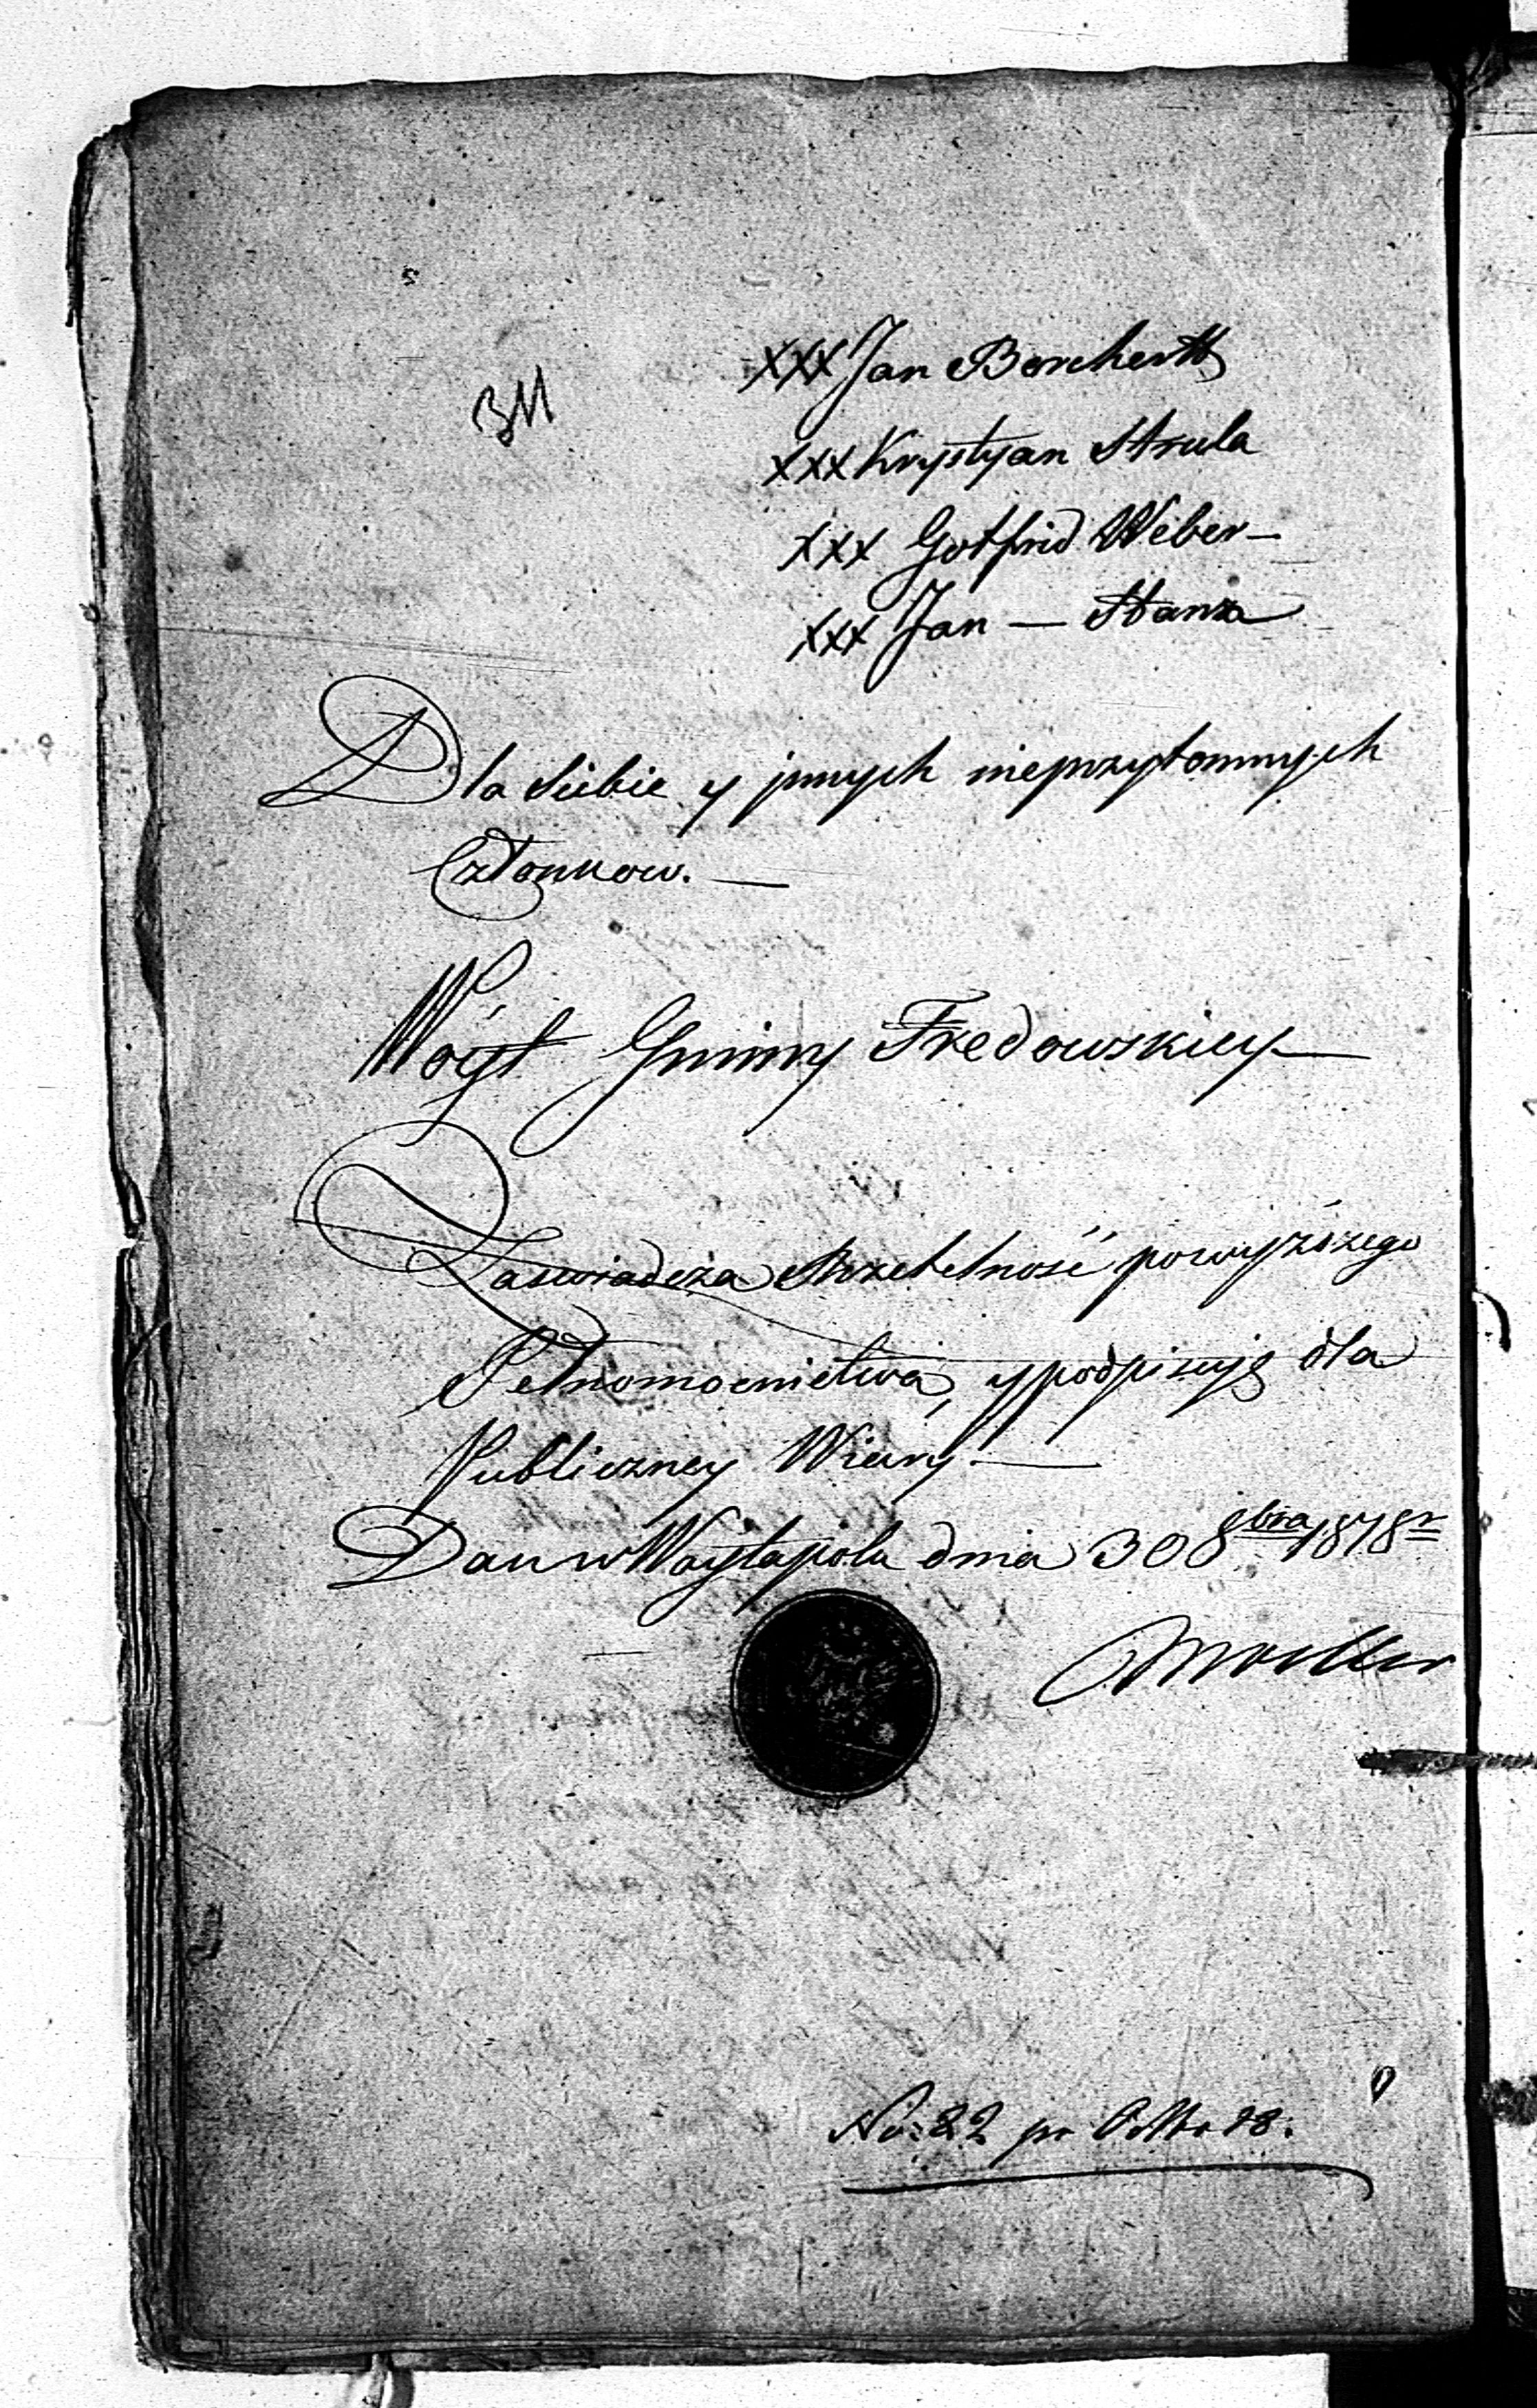 xxx Jan Borchert
311
xxx Krystyan Strula
xxx Gotfrid Weber
xxx Jan — Stanza
Dla siebie y jnnych nieprzytomnych
Członkow. —
Wóyt Gminy Fredowskiey
Zaswiadcza Rzetelność powyższego
Pełnomocnictwa, y podpisuję dla
Publiczney Wiary —
Dan w Woytapolu dnia 30 8bra 1818r
No: 82 pr